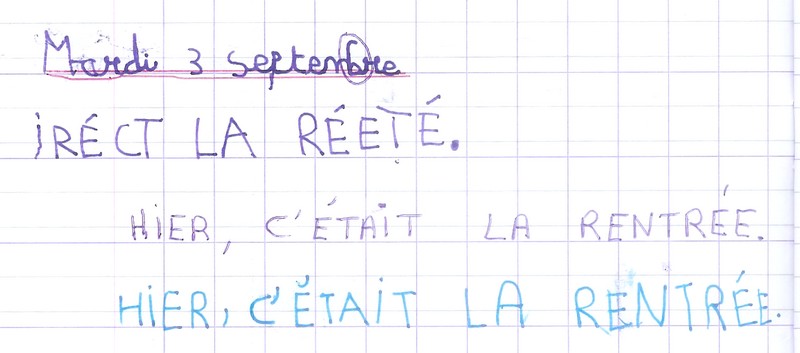 Mardi 3 septembre
iRÉCT LA RÉETÉ.
HiER, C'ÉTAiT LA RENTRÉE.
HiER, C'ÉTAiT LA RENTRÉE.